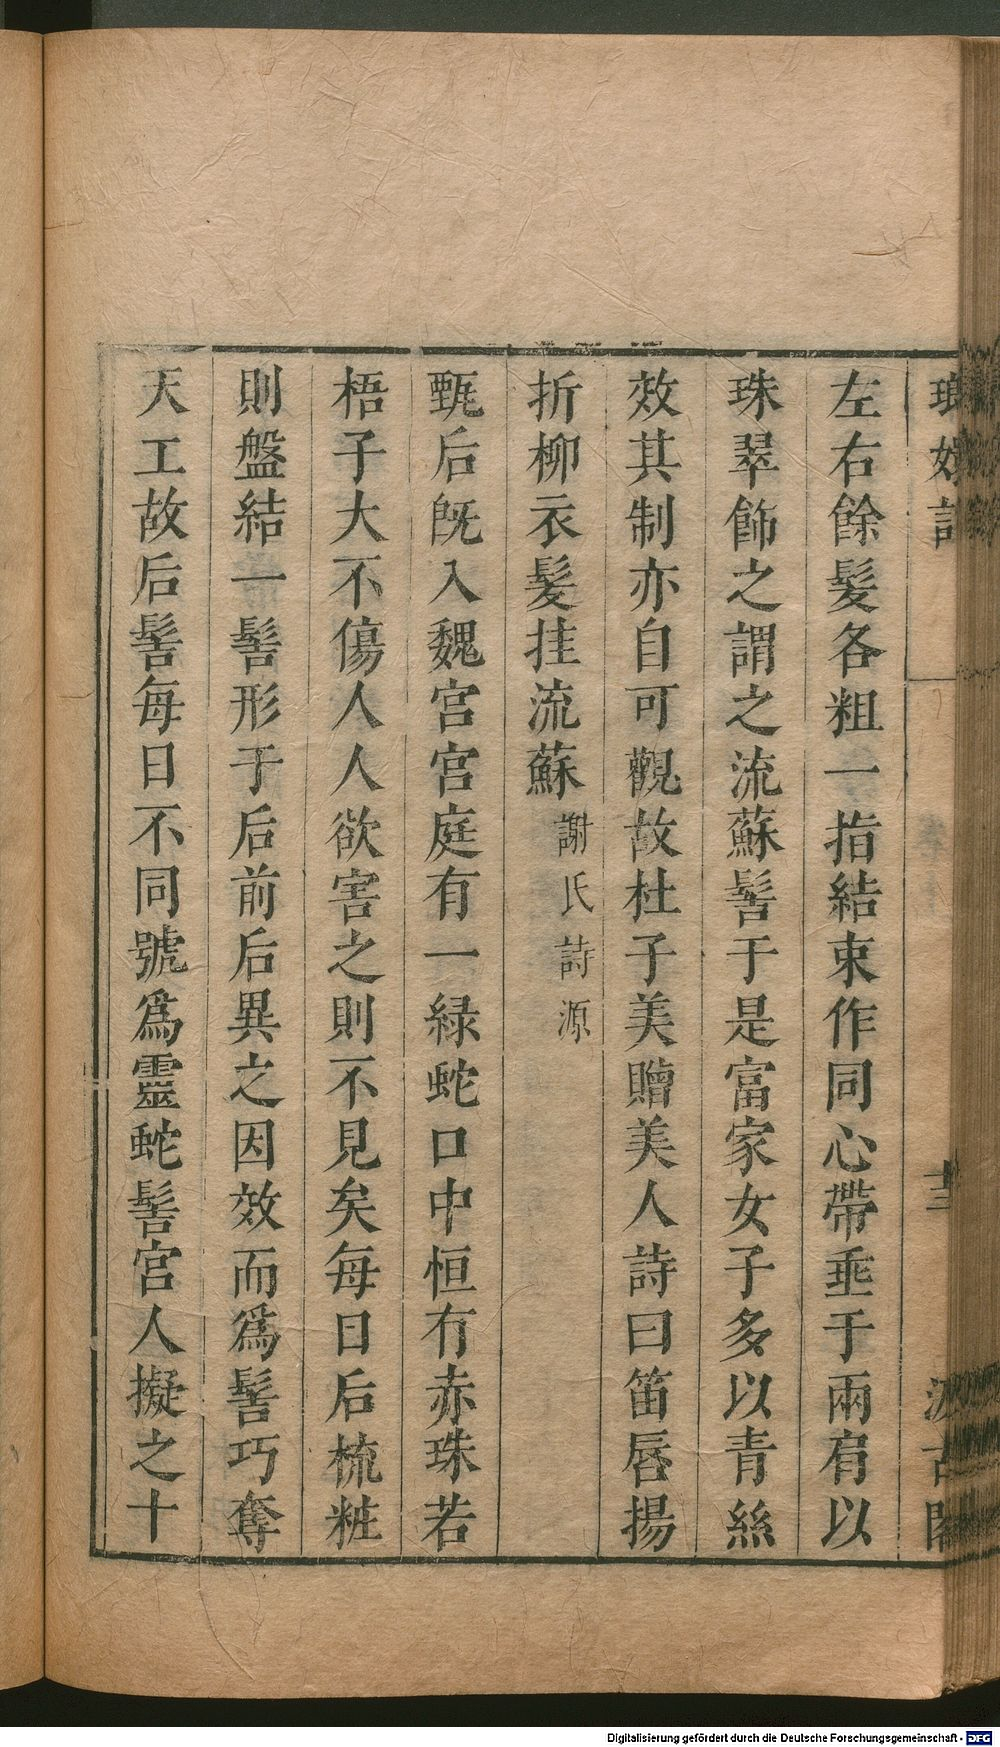 瑯嬛記 十三 汲古閣
左右餘髮各粗一指結束作同心帶垂于兩肩以
珠翠飾之謂之流蘇髻于是富家女子多以青絲
效其制亦自可觀故杜子美贈美人詩曰笛唇揚
折柳衣髮挂流蘇謝氏詩源
甄后旣入魏宮宮庭有一緑蛇口中恒有赤珠若
梧子大不傷人人欲害之則不見矣每日后梳粧
則盤結一髻形于后前后異之因效而爲髻巧奪
天工故后髻每日不同號爲靈蛇髻宮人擬之十
Digitalisierung gefördert durch die Deutsche Forschungsgemeinschaft - DFG